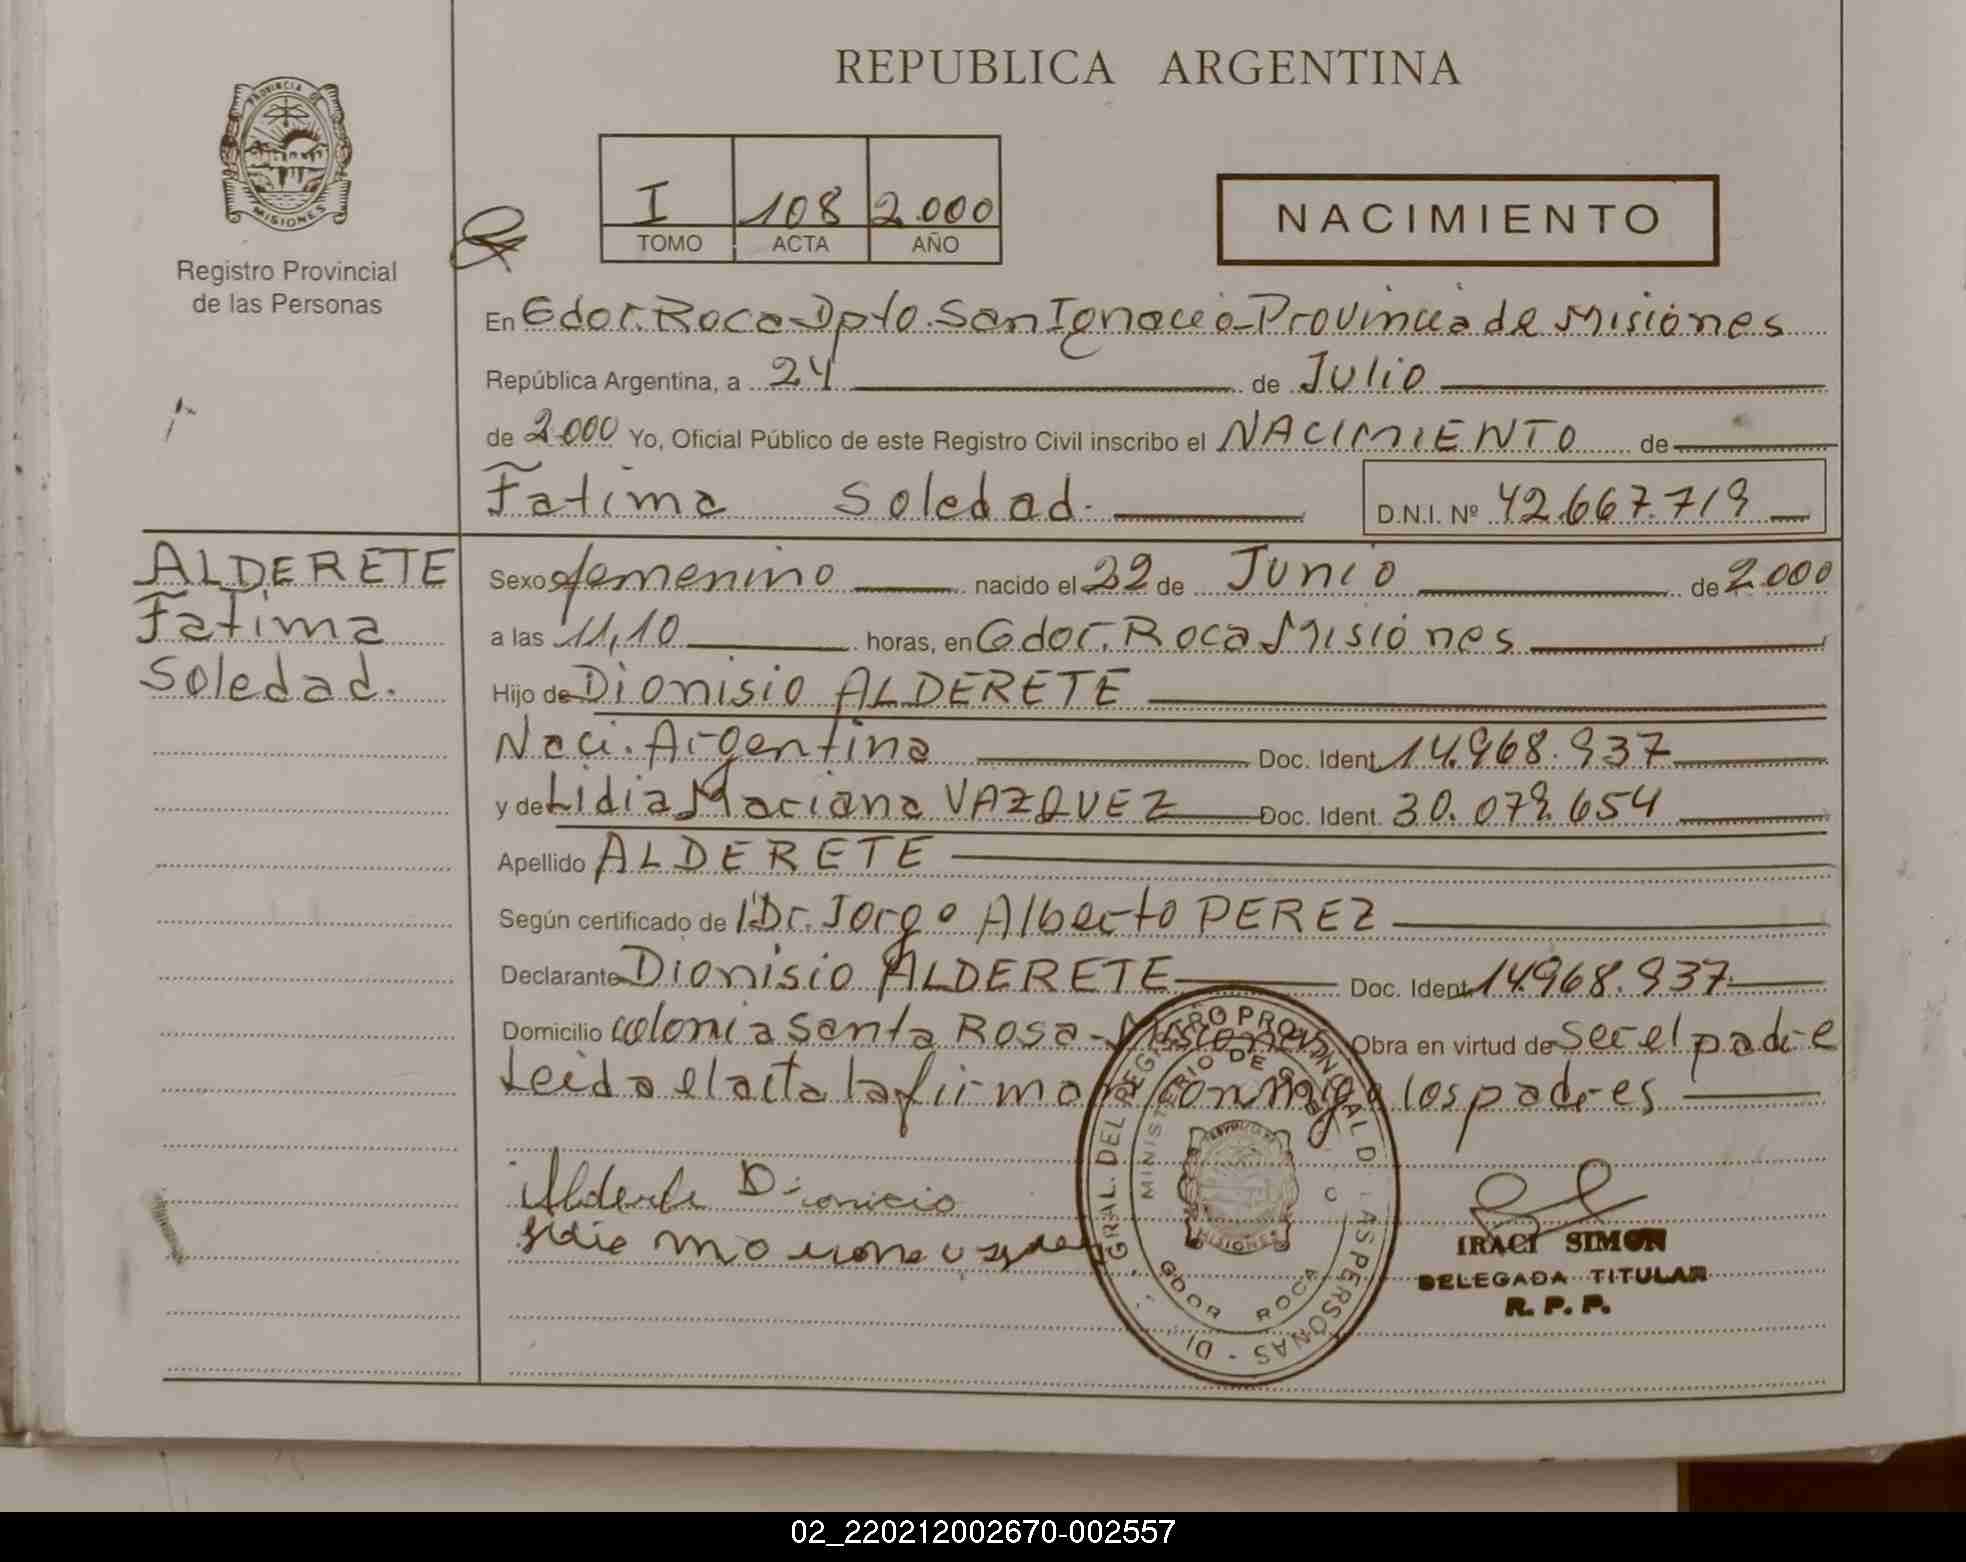 REPUBLICA ARGENTINA
PROVINCIA DE
MISIONES
Registro Provincial
de las Personas
I 108 2.000
TOMO ACTA AÑO
NACIMIENTO
En Gdor. Roca Dpto. San Ignacio - Provincia de Misiones
República Argentina, a 24 de Julio
de 2.000 Yo, Oficial Público de este Registro Civil inscribo el NACIMIENTO de
Fatima Soledad.
D.N.I. Nº 42.667.719
ALDERETE
Fatima
Soledad.
Sexo femenino nacido el 22 de Junio de 2.000
a las 11,10 horas, en Gdor. Roca Misiones
Hijo de Dionisio ALDERETE
Naci. Argentina Doc. Ident. 14.968.937
y de Lidia Mariana VAZQUEZ Doc. Ident. 30.079.654
Apellido ALDERETE
Según certificado de Dr. Jorge Alberto PEREZ
Declarante Dionisio ALDERETE Doc. Ident. 14.968.937
Domicilio colonia Santa Rosa - Misiones Obra en virtud de ser el padre
Leida el acta la firman conmigo los padres
Alderete Dionicio
GRAL. DEL REGISTRO PROVINCIAL D LAS PERSONAS - DI
MINISTERIO DE GOB
MISIONES
GDOR ROCA
IRACI SIMON
DELEGADA TITULAR
R. P. P.
02_220212002670-002557